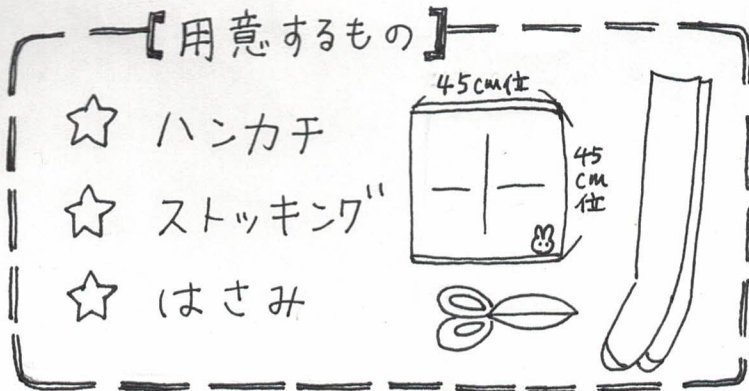 【用意するもの】
☆ ハンカチ
☆ ストッキング
☆ はさみ
45cm位
45cm位